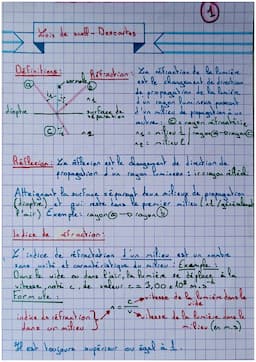 1
Lois de snell - Descartes
Définitions:
Réfraction: La réfraction de la lumière
est le changement de direction
de propagation de la lumière
d'un rayon lumineux passant
d'un milieu de propagation à un
autre.
normale
dioptre
surface de séparation
n1
n2
Réflexion: La réflexion est le changement de direction de
propagation d'un rayon lumineux:
Atteignant la surface séparant deux milieux de propagation
(dioptre) et qui reste dans le premier milieu (et généralement
l'air) Exemple: rayon a → rayon b
Indice de réfraction:
L'indice de réfractation d'un milieu est un nombre
sans unité et caractéristique du milieu: Exemple:
Dans le vide ou dans l'air, la lumière se déplace à la
vitesse, noté c, de valeur c = 3,00 x 10⁸ m.s⁻¹
Formule:
indice de réfraction dans un milieu
n = c/v
vitesse de la lumière dans le vide
vitesse de la lumière dans le milieu (en m.s)
Il est toujours supérieur ou égal à 1.